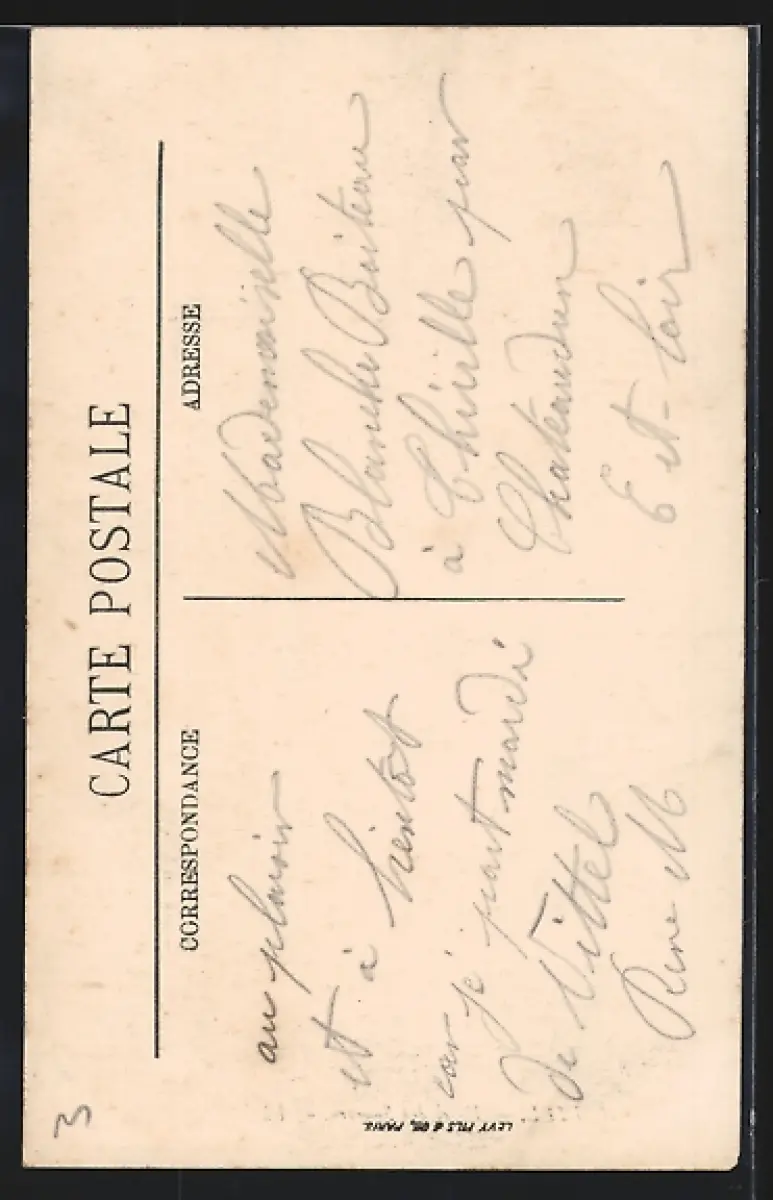 CARTE POSTALE
CORRESPONDANCE
au plaisir
et à bientot
car je part mardi
de Vittel
Rene M
ADRESSE
Mademoiselle
Blanche Boiteau
à Thiville par
Chateaudun
E et-Loir
LEVY FILS & Cie, PARIS
3